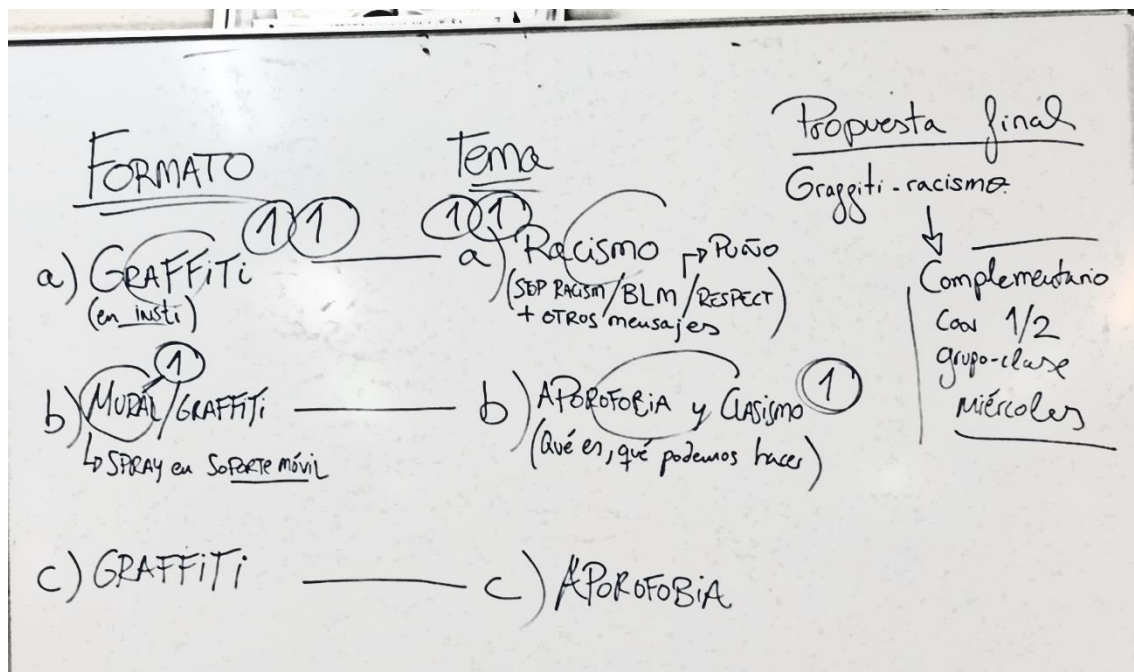 FORMATO
a) GRAFFiTi ① ①
(en insti)
b) MURAL/GRAFFiTi ①
↳ SPRAY en SOPORTE móvil
c) GRAFFiTi
Tema
① ①
a) Racismo ↱ PUÑO
(SEP RACISM/BLM/RESPECT)
+ OTROS mensajes
b) APOROFOBIA y CLASISMO ①
(Qué es, qué podemos hacer)
c) APOROFOBiA
Propuesta final
Graggiti - racismo.
↓
Complementario
Con 1/2
grupo-clase
Miércoles